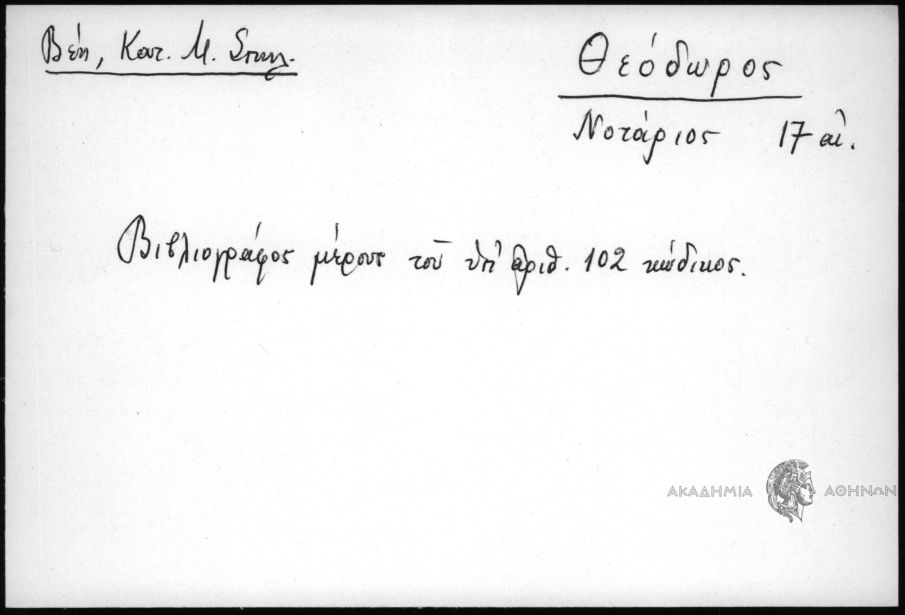 Βέη, Κατ. Μ. Σπηλ.
Θεόδωρος
Νοτάριος 17 αἰ.
Βιβλιογράφος μέρους τοῦ ὑπ' ἀριθ. 102 κώδικος.
ΑΚΑΔΗΜΙΑ ΑΘΗΝΩΝ